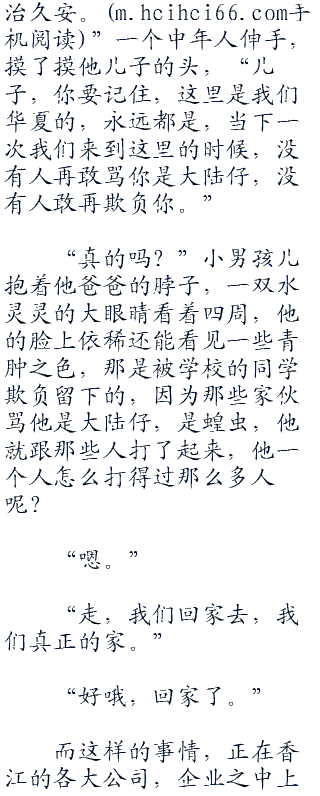 治久安。(m.hcihci66.com手
机阅读)”一个中年人伸手，
摸了摸他儿子的头，“儿
子，你要记住，这里是我们
华夏的，永远都是，当下一
次我们来到这里的时候，没
有人再敢骂你是大陆仔，没
有人敢再欺负你。”
“真的吗？”小男孩儿
抱着他爸爸的脖子，一双水
灵灵的大眼睛看着四周，他
的脸上依稀还能看见一些青
肿之色，那是被学校的同学
欺负留下的，因为那些家伙
骂他是大陆仔，是蝗虫，他
就跟那些人打了起来，他一
个人怎么打得过那么多人
呢？
“嗯。”
“走，我们回家去，我
们真正的家。”
“好哦，回家了。”
而这样的事情，正在香
江的各大公司，企业之中上